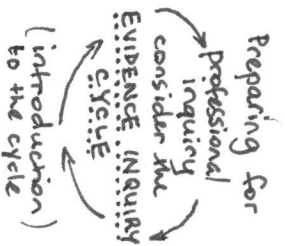 Preparing for
professional
inquiry
consider the
EVIDENCE INQUIRY
CYCLE
(introduction
to the cycle)